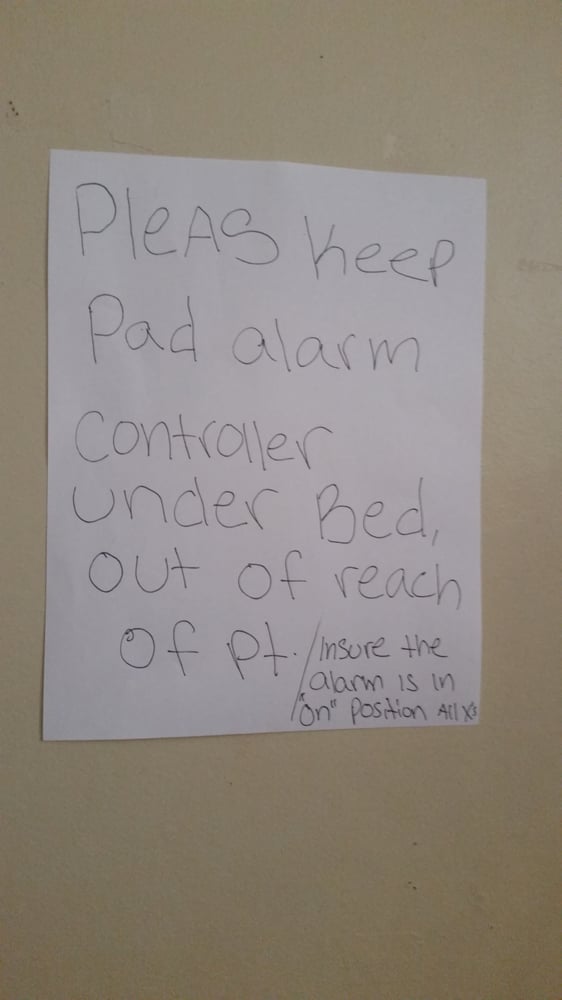 PleAS keep
Pad alarm
controller
under Bed,
out of reach
of pt. / Insure the
alarm is in
"on" position All X's